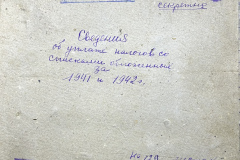 секретно
Сведения
об уплате налогов со
списками обложенных
за
1941 и 1942 г.